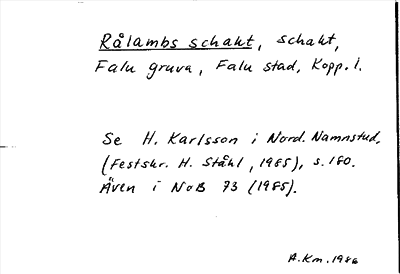 Rålambs schakt, schakt,
Falu gruva, Falu stad, Kopp. l.
Se H. Karlsson i Nord. Namnstud.
(Festskr. H. Ståhl, 1985), s. 180.
Även i NoB 73 (1985).
A.Km. 1986